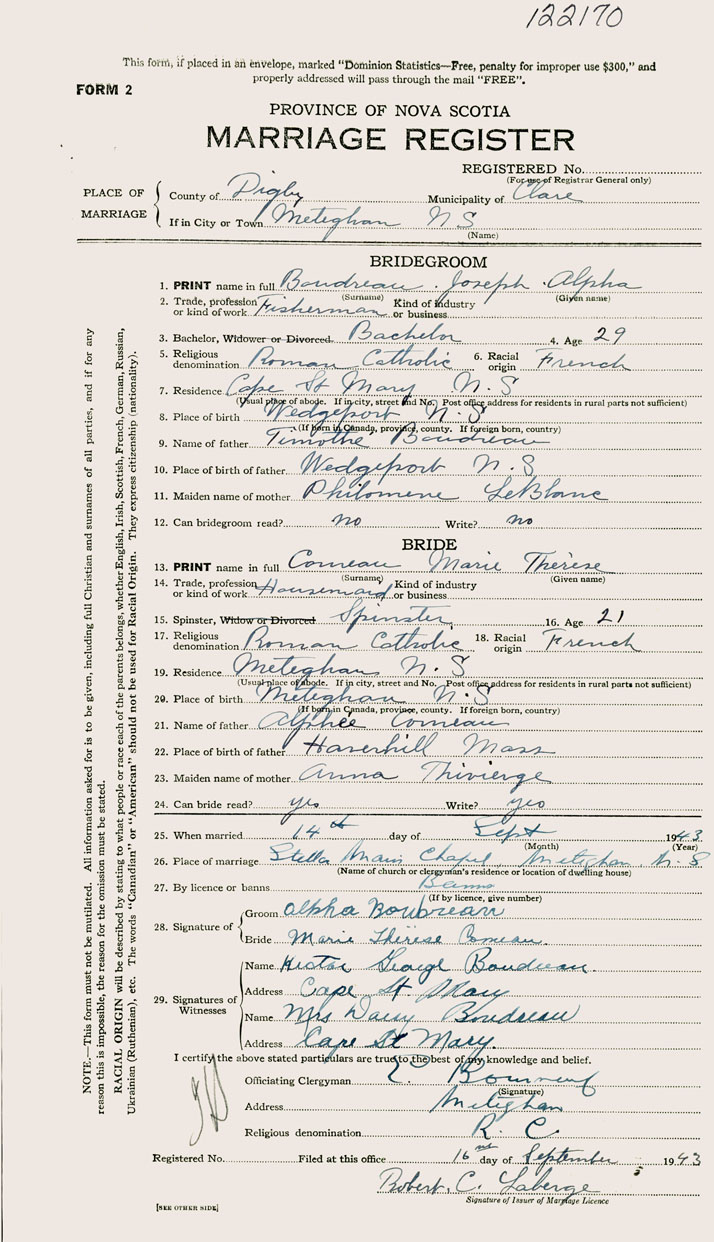 122170
This form, if placed in an envelope, marked "Dominion Statistics—Free, penalty for improper use $300," and
properly addressed will pass through the mail "FREE".
FORM 2
PROVINCE OF NOVA SCOTIA
MARRIAGE REGISTER
REGISTERED No.
(For use of Registrar General only)
PLACE OF MARRIAGE
County of Digby Municipality of Clare
If in City or Town Meteghan N S
(Name)
BRIDEGROOM
1. PRINT name in full Boudreau Joseph Alpha
(Surname) (Given name)
2. Trade, profession or kind of work Fisherman Kind of industry or business
3. Bachelor, Widower or Divorced. Bachelor 4. Age 29
5. Religious denomination Roman Catholic 6. Racial origin French
7. Residence Cape St Mary N. S
(Usual place of abode. If in city, street and No. Post office address for residents in rural parts not sufficient)
8. Place of birth Wedgeport N. S
(If born in Canada, province, county. If foreign born, country)
9. Name of father Timothe Boudreau
10. Place of birth of father Wedgeport N. S
11. Maiden name of mother Philomene LeBlanc
12. Can bridegroom read? no Write? no
BRIDE
13. PRINT name in full Comeau Marie Therèse
(Surname) (Given name)
14. Trade, profession or kind of work Housemaid Kind of industry or business
15. Spinster, Widow or Divorced Spinster 16. Age 21
17. Religious denomination Roman Catholic 18. Racial origin French
19. Residence Meteghan N. S
(Usual place of abode. If in city, street and No. Post office address for residents in rural parts not sufficient)
20. Place of birth Meteghan N. S
(If born in Canada, province, county. If foreign born, country)
21. Name of father Alphée Comeau
22. Place of birth of father Haverhill Mass
23. Maiden name of mother Anna Thivierge
24. Can bride read? yes Write? yes
25. When married 14th day of Sept 1943
(Month) (Year)
26. Place of marriage Stella Maris Chapel, Meteghan N. S
(Name of church or clergyman's residence or location of dwelling house)
27. By licence or banns Banns
(If by licence, give number)
28. Signature of
Groom Alpha Boudreau
Bride Marie Therèse Comeau.
29. Signatures of Witnesses
Name Hector George Boudreau.
Address Cape St Mary
Name Mrs Daisy Boudreau
Address Cape St Mary.
I certify the above stated particulars are true to the best of my knowledge and belief.
Officiating Clergyman E.
(Signature)
Address Meteghan
Religious denomination R. C.
Registered No. Filed at this office 16 day of September 1943
Robert. C. Laberge
Signature of Issuer of Marriage Licence
[SEE OTHER SIDE]
NOTE.—This form must not be mutilated. All information asked for is to be given, including full Christian and surnames of all parties, and if for any
reason this is impossible, the reason for the omission must be stated.
RACIAL ORIGIN will be described by stating to what people or race each of the parents belongs, whether English, Irish, Scottish, French, German, Russian,
Ukrainian (Ruthenian), etc. The words "Canadian" or "American" should not be used for Racial Origin. They express citizenship (nationality).